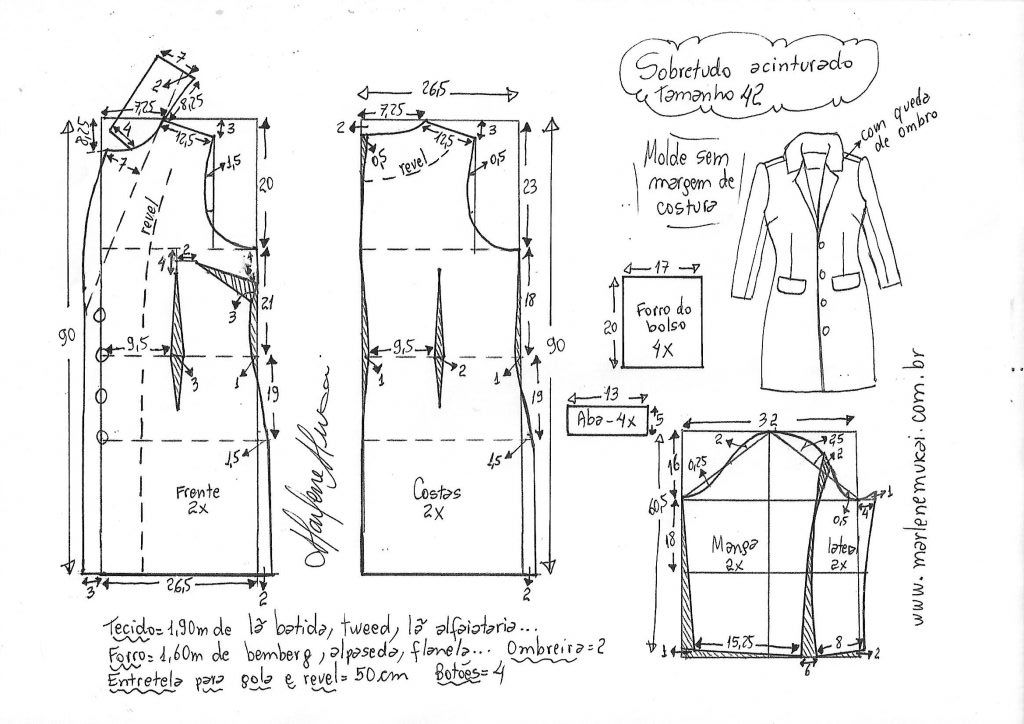 Sobretudo acinturado
Tamanho 42
com queda
de ombro
Molde sem
margem de
costura
7
2
8,25
7,25
8,25
4
7
12,5
3
1,5
20
revel
4
2
21
3
90
9,5
3
1
19
1,5
Frente
2x
3
26,5
2
26,5
7,25
2
0,5
revel
12,5
3
0,5
23
18
90
9,5
1
2
1
19
1,5
Costas
2x
2
17
20
Forro do
bolso
4x
13
Aba - 4x
5
32
16
2
0,25
2,5
2
1
0,5
4
60,5
18
Manga
2x
lateral
2x
15,25
8
1
6
2
www.marlenemukai.com.br
Marlene Mukai
Tecido = 1,90m de lã batida, tweed, lã alfaiataria...
Forro = 1,60m de bemberg, alpaseda, flanela... Ombreira = 2
Entretela para gola e revel = 50 cm Botões = 4